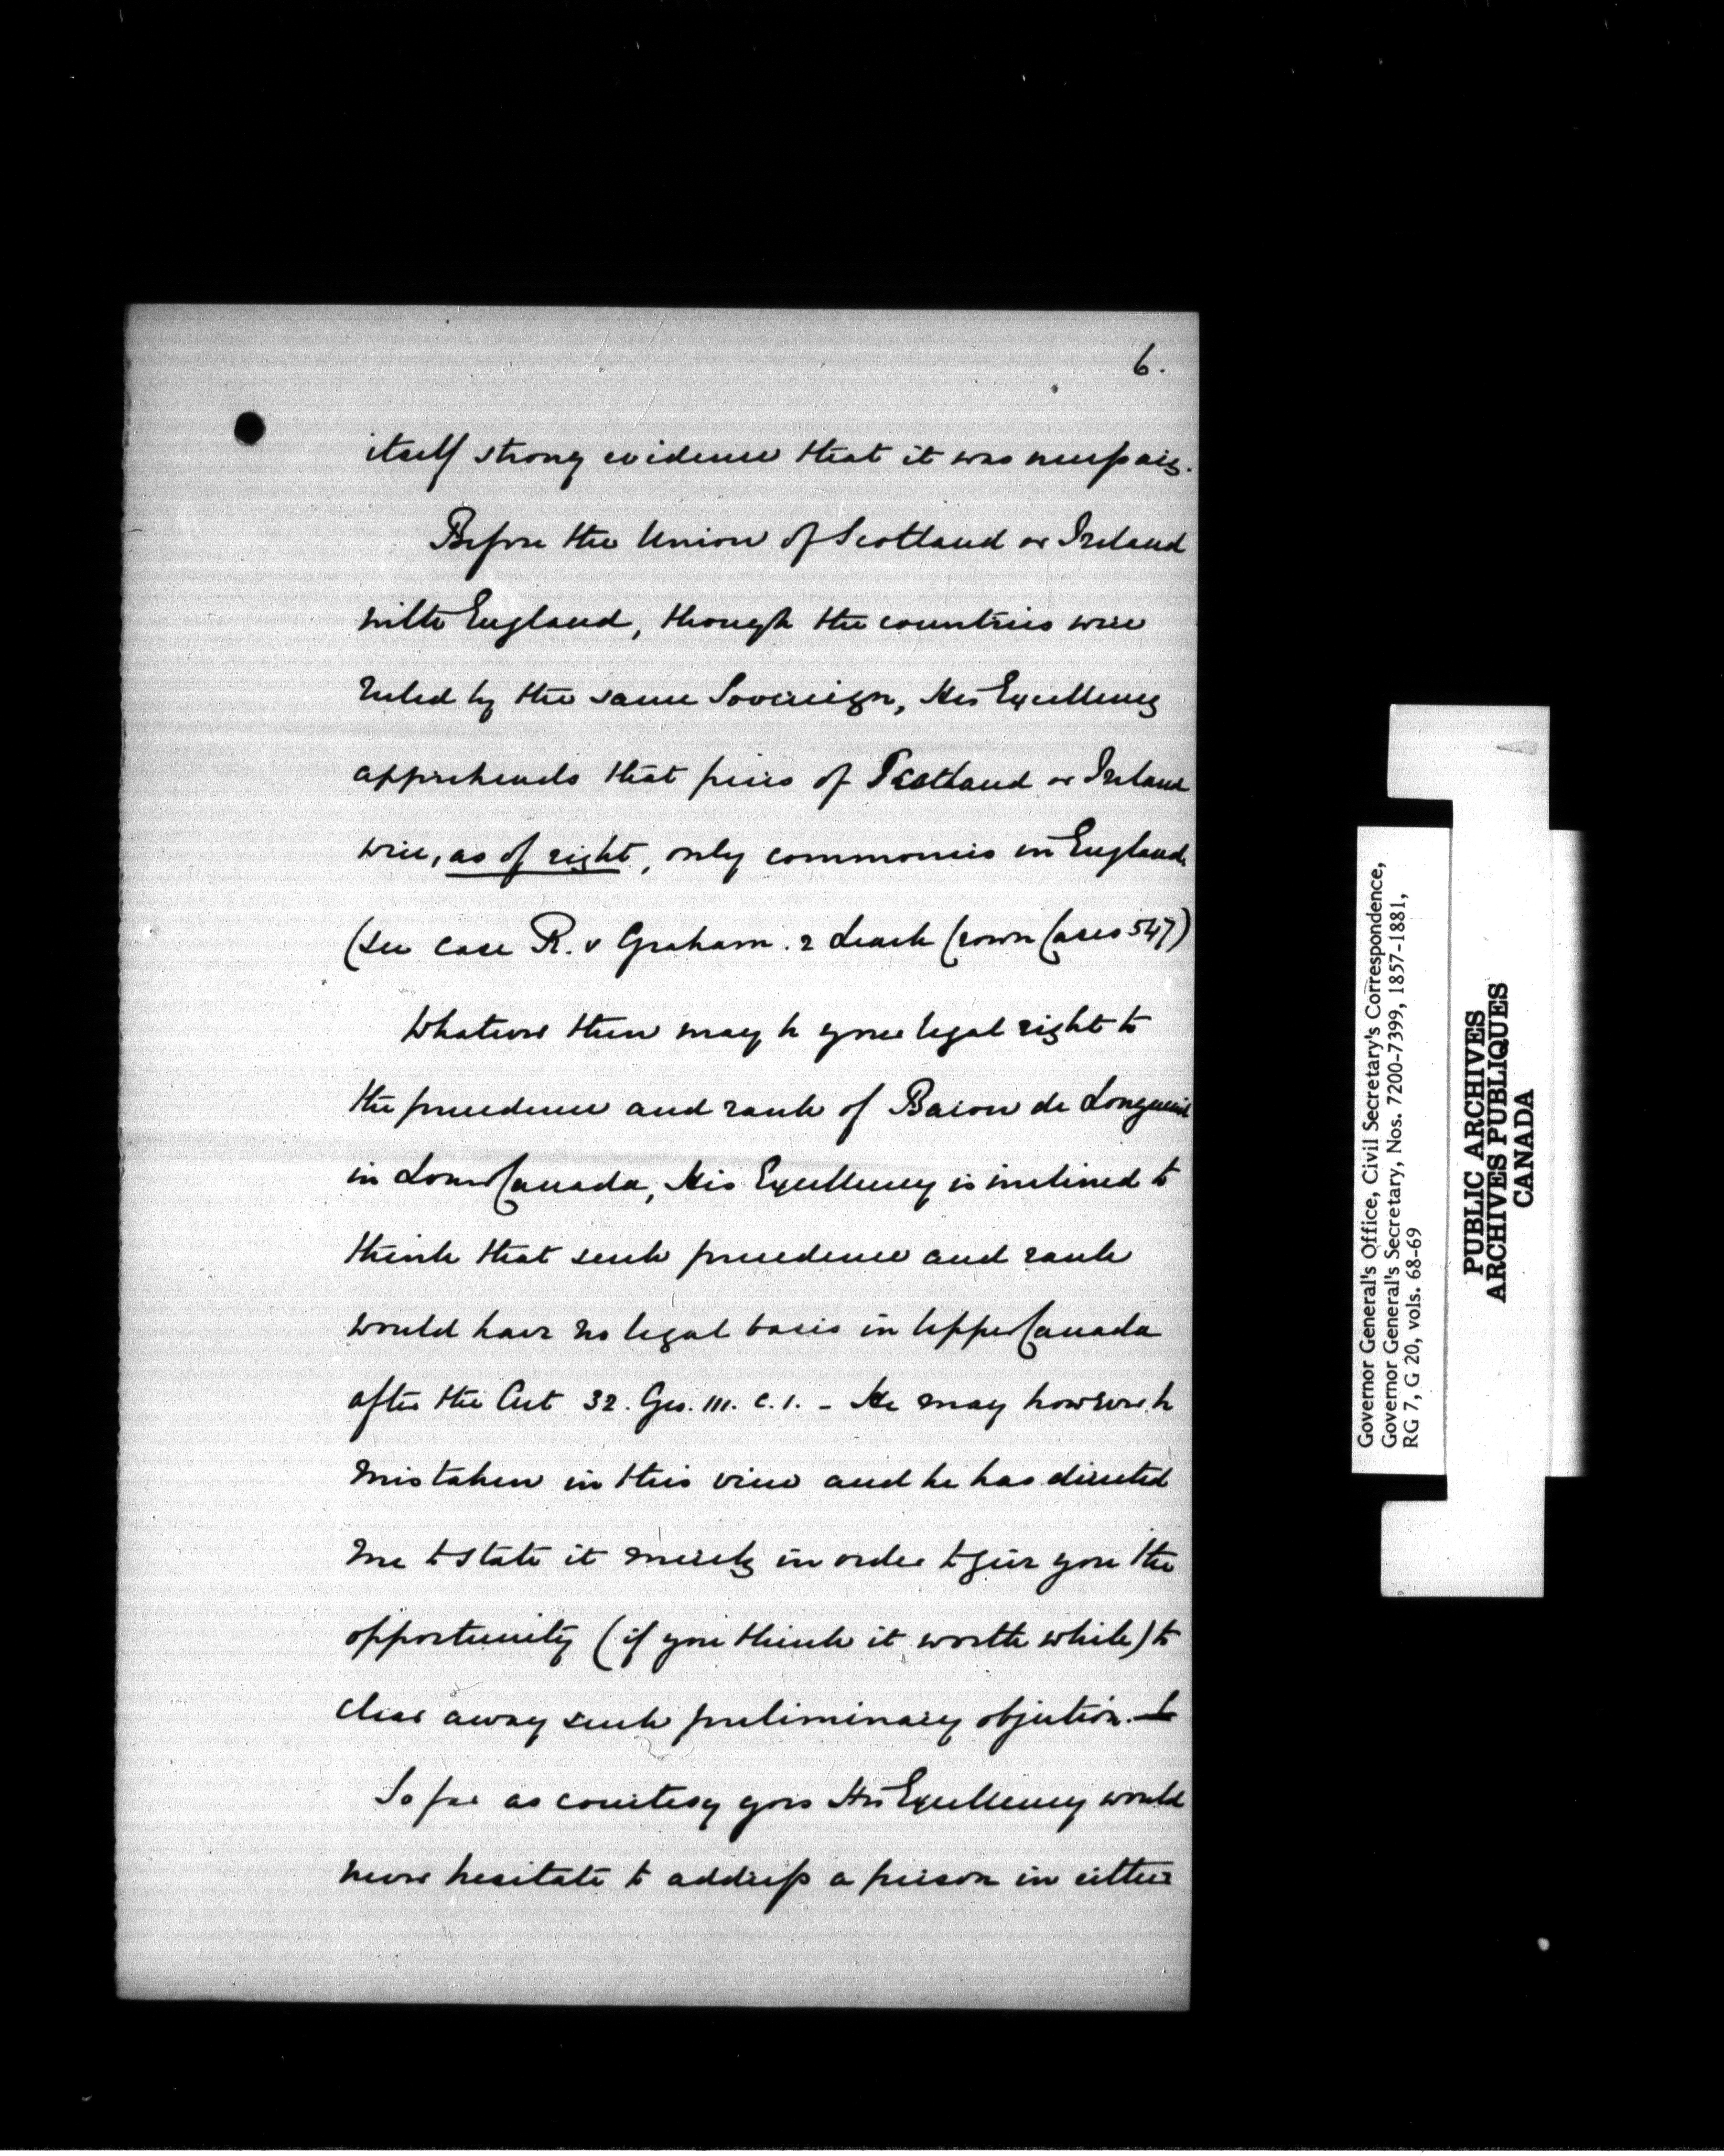 6.
itself strong evidence that it was necessary.
Before the Union of Scotland or Ireland
with England, though the countries were
ruled by the same Sovereign, His Excellency
apprehends that peers of Scotland or Ireland
were, as of right, only commoners in England
(see case R. v Graham. 2 Leach Crown Cases 547)
Whatever then may be your legal right to
the precedence and rank of Baron de Longueuil
in Lower Canada, His Excellency is inclined to
think that such precedence and rank
would have no legal basis in Upper Canada
after the Act 32. Geo. III. c. 1. - He may however be
mistaken in this view and he has directed
me to state it merely in order to give you the
opportunity (if you think it worth while) to
clear away such preliminary objection.
So far as courtesy goes His Excellency would
never hesitate to address a person in either
Governor General's Office, Civil Secretary's Correspondence,
Governor General's Secretary, Nos. 7200-7399, 1857-1881,
RG 7, G 20, vols. 68-69
PUBLIC ARCHIVES
ARCHIVES PUBLIQUES
CANADA